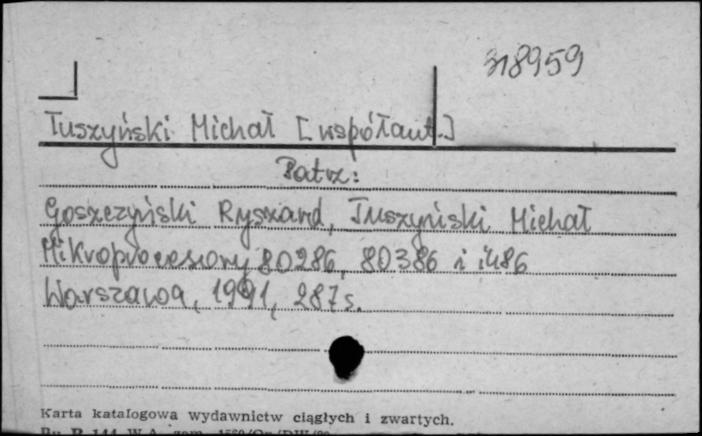 318959
Tuszyński Michał [współaut.]
Patrz:
Goszczyński Ryszard, Tuszyński Michał
Mikroprocesory 80286, 80386 i i486
Warszawa, 1991, 287 s.
Karta katalogowa wydawnictw ciągłych i zwartych.